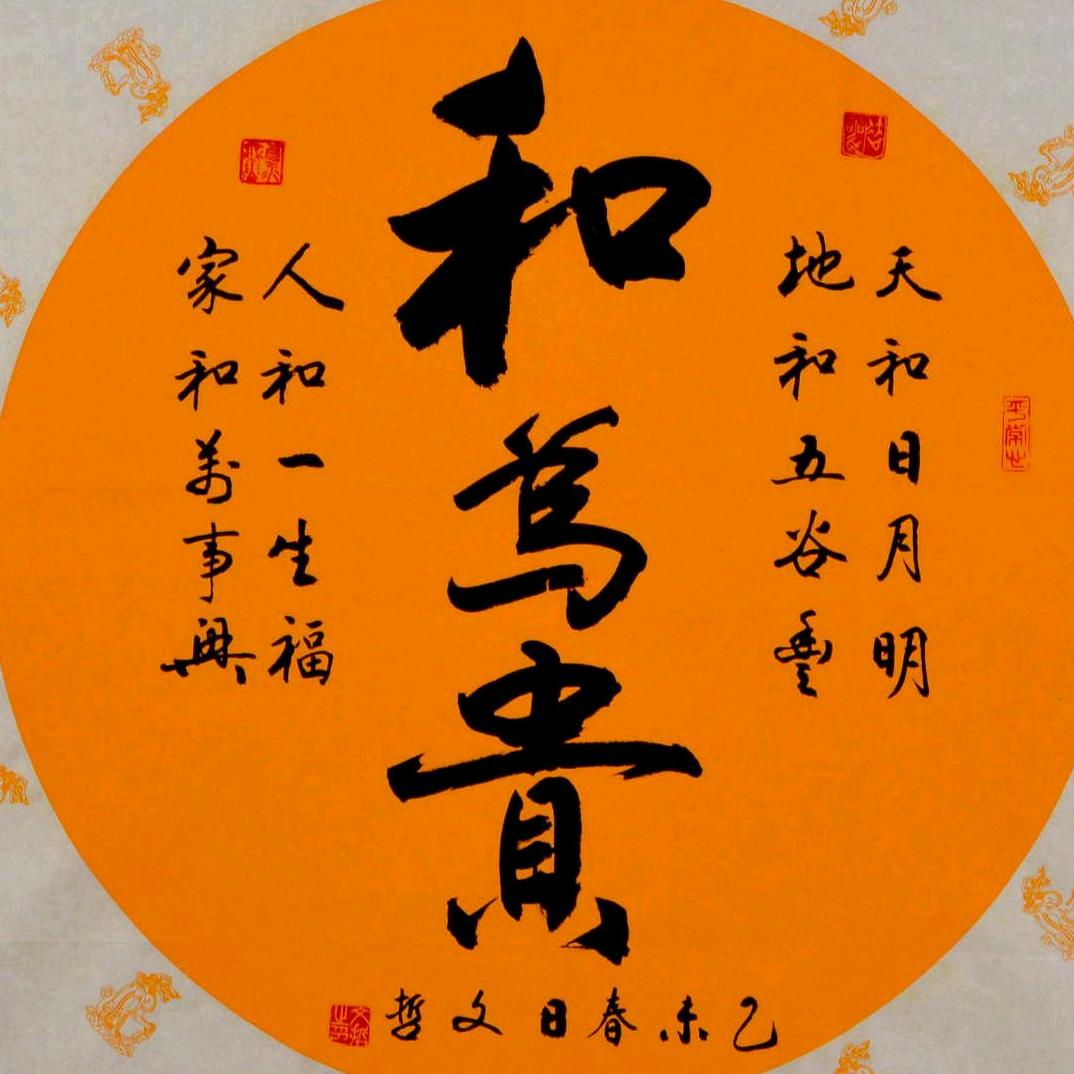 和為貴
天和日月明
地和五谷豐
人和一生福
家和萬事興
乙未春日文哲
平常心